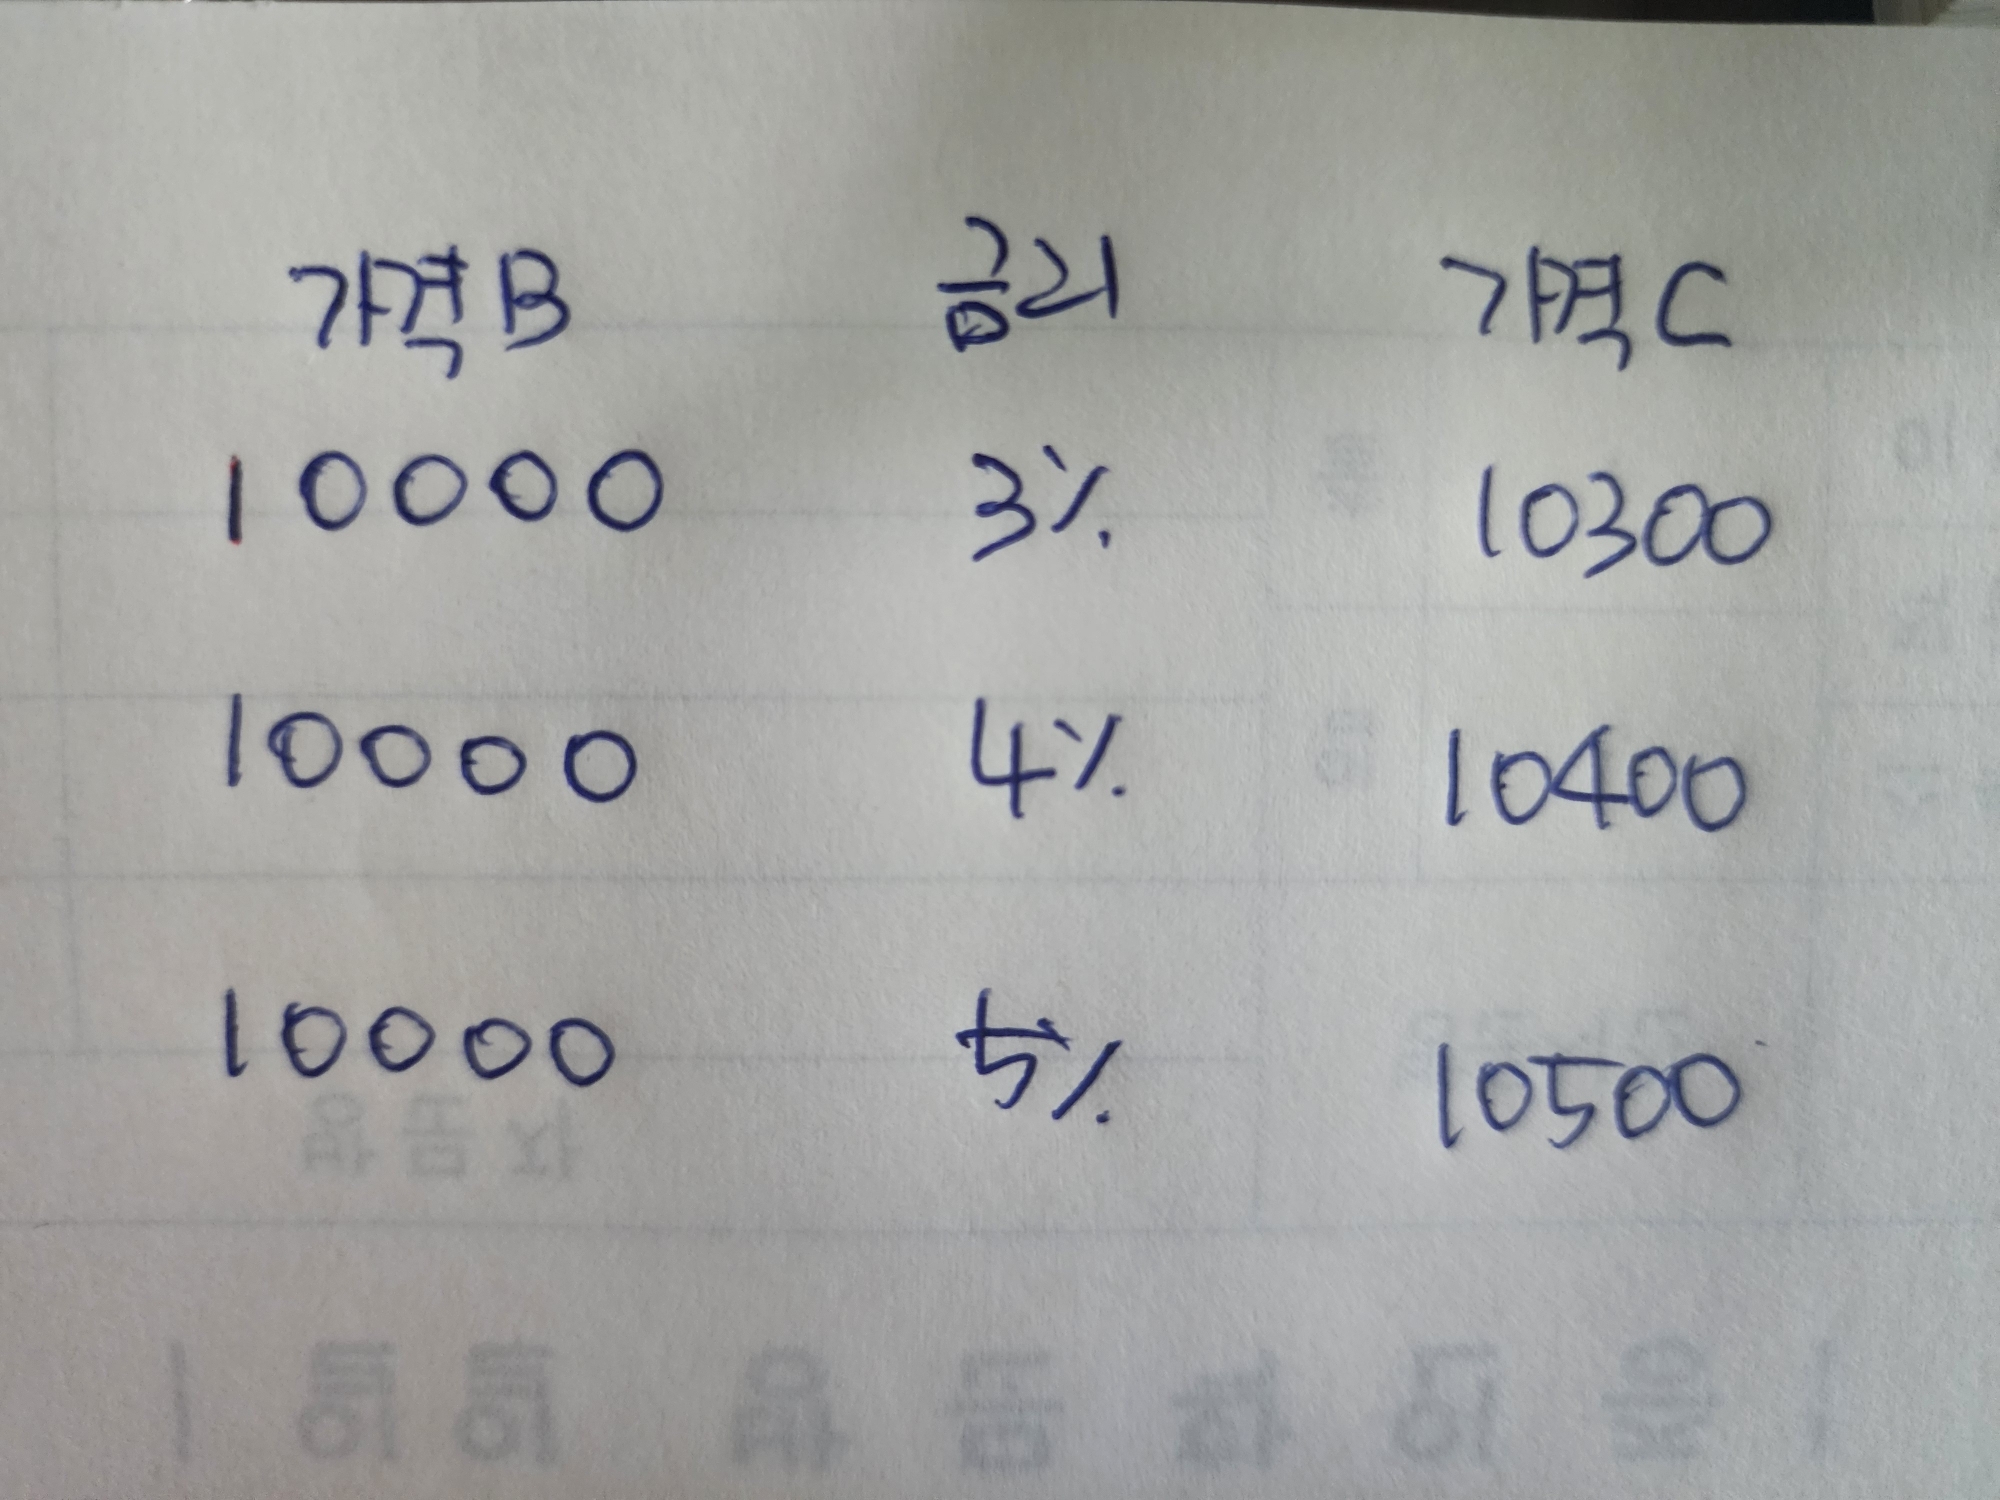 가격B 금리 가격C
10000 3% 10300
10000 4% 10400
10000 5% 10500